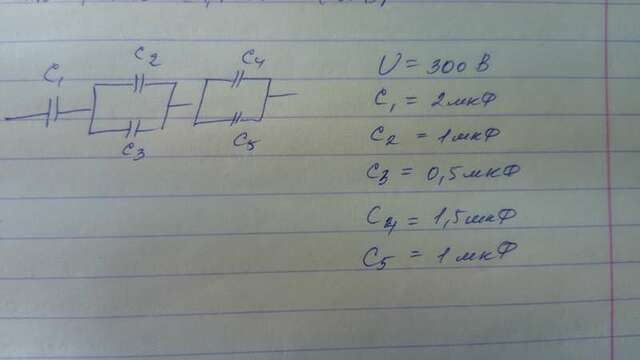 C1
C2
C3
C4
C5
U = 300 В
C1 = 2 мкФ
C2 = 1 мкФ
C3 = 0,5 мкФ
C4 = 1,5 мкФ
C5 = 1 мкФ